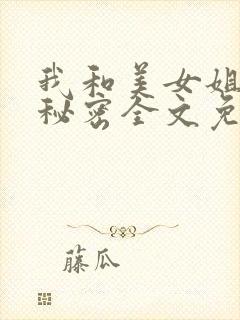 我和美女姐
秘密全文免
藤瓜